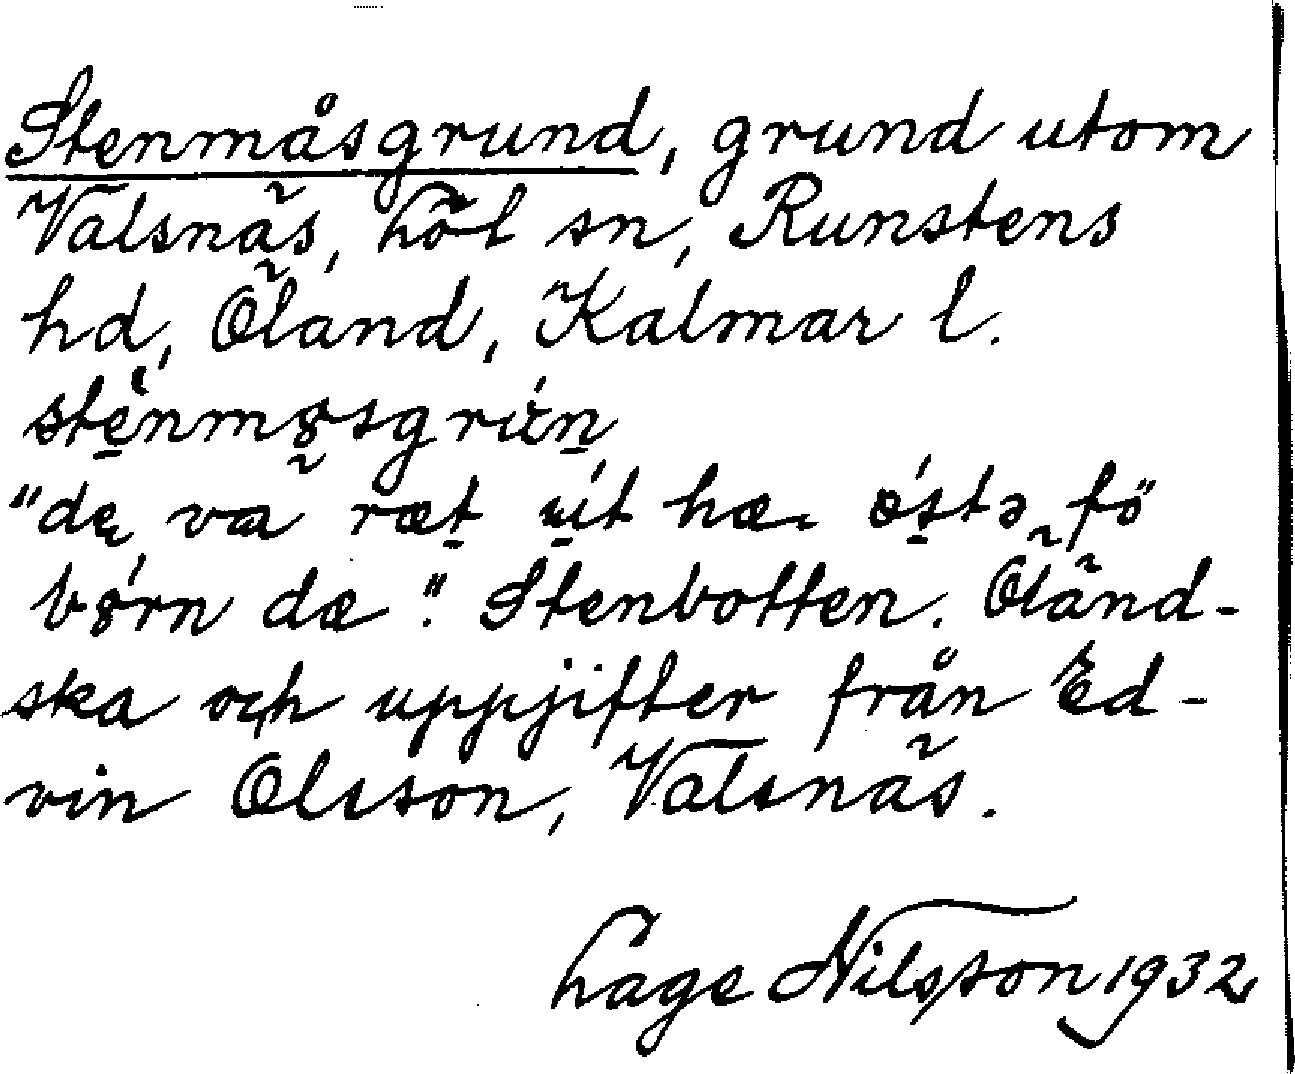 Stenmåsgrund, grund utom
Valsnäs, Löt sn, Runstens
hd, Öland, Kalmar l.
"de va ræt ut hæ. östə fö
dæ". Stenbotten. Öländ-
ska och uppjifter från Ed-
vin Olsson, Valsnäs.
Lage Nilsson 1932